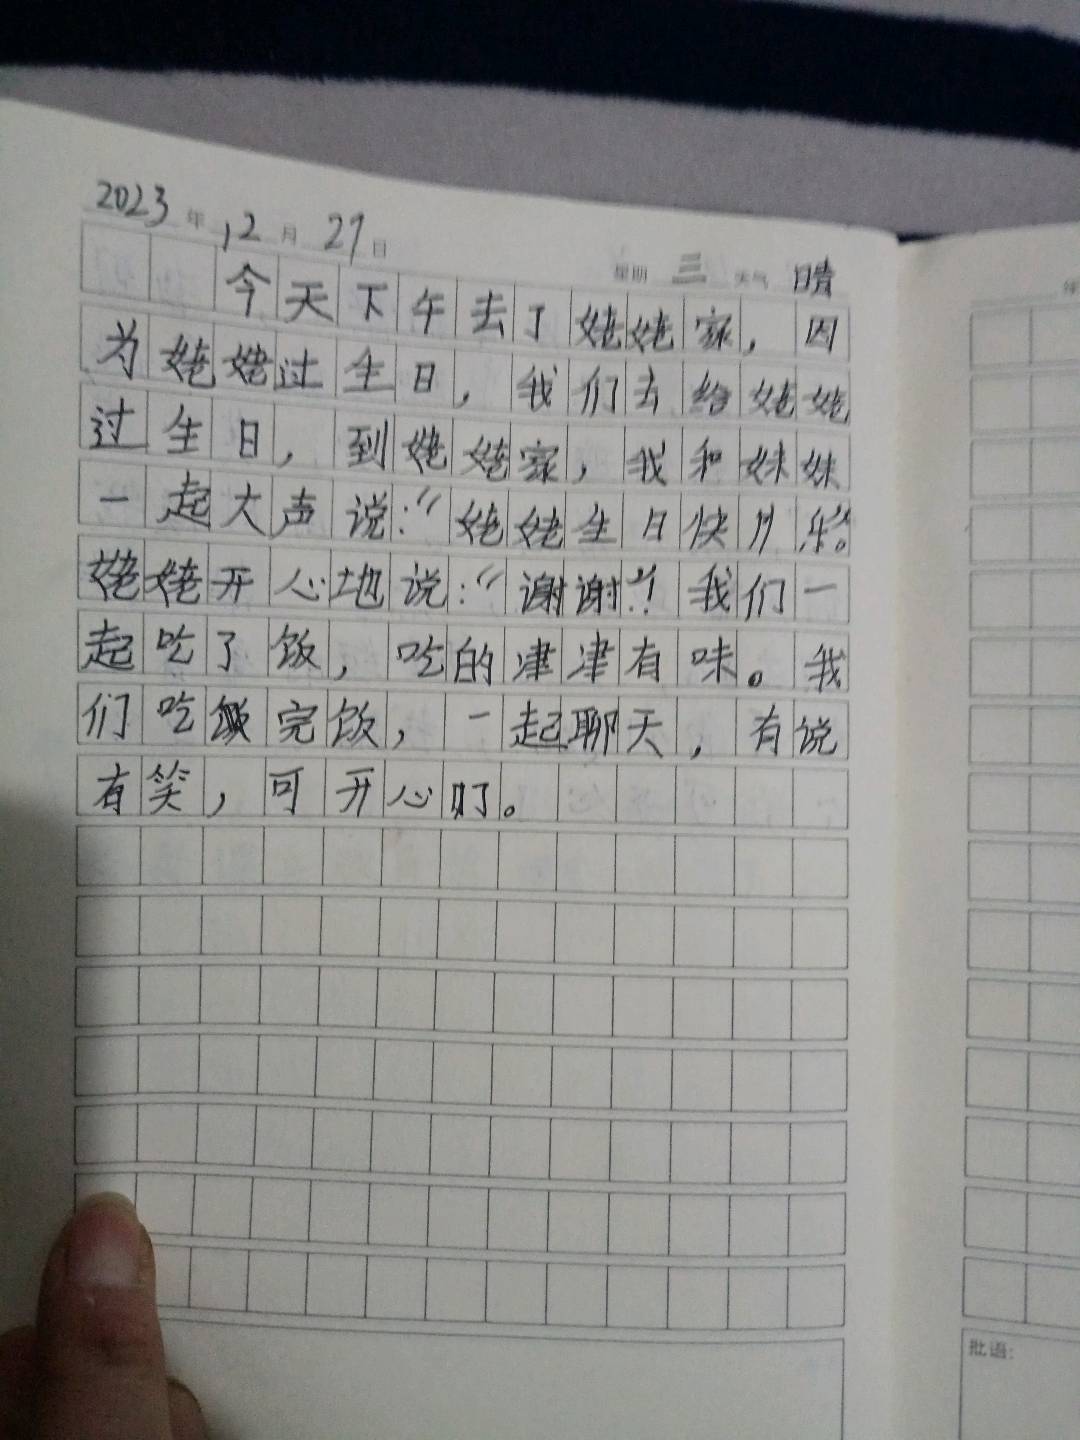 2023年12月27日 星期三 天气晴
今天下午去了姥姥家，因
为姥姥过生日，我们去给姥姥
过生日，到姥姥家，我和妹妹
一起大声说：“姥姥生日快乐。”
姥姥开心地说：“谢谢”！我们一
起吃了饭，吃的津津有味。我
们吃饭完饭，一起聊天，有说
有笑，可开心了。
年
批语：